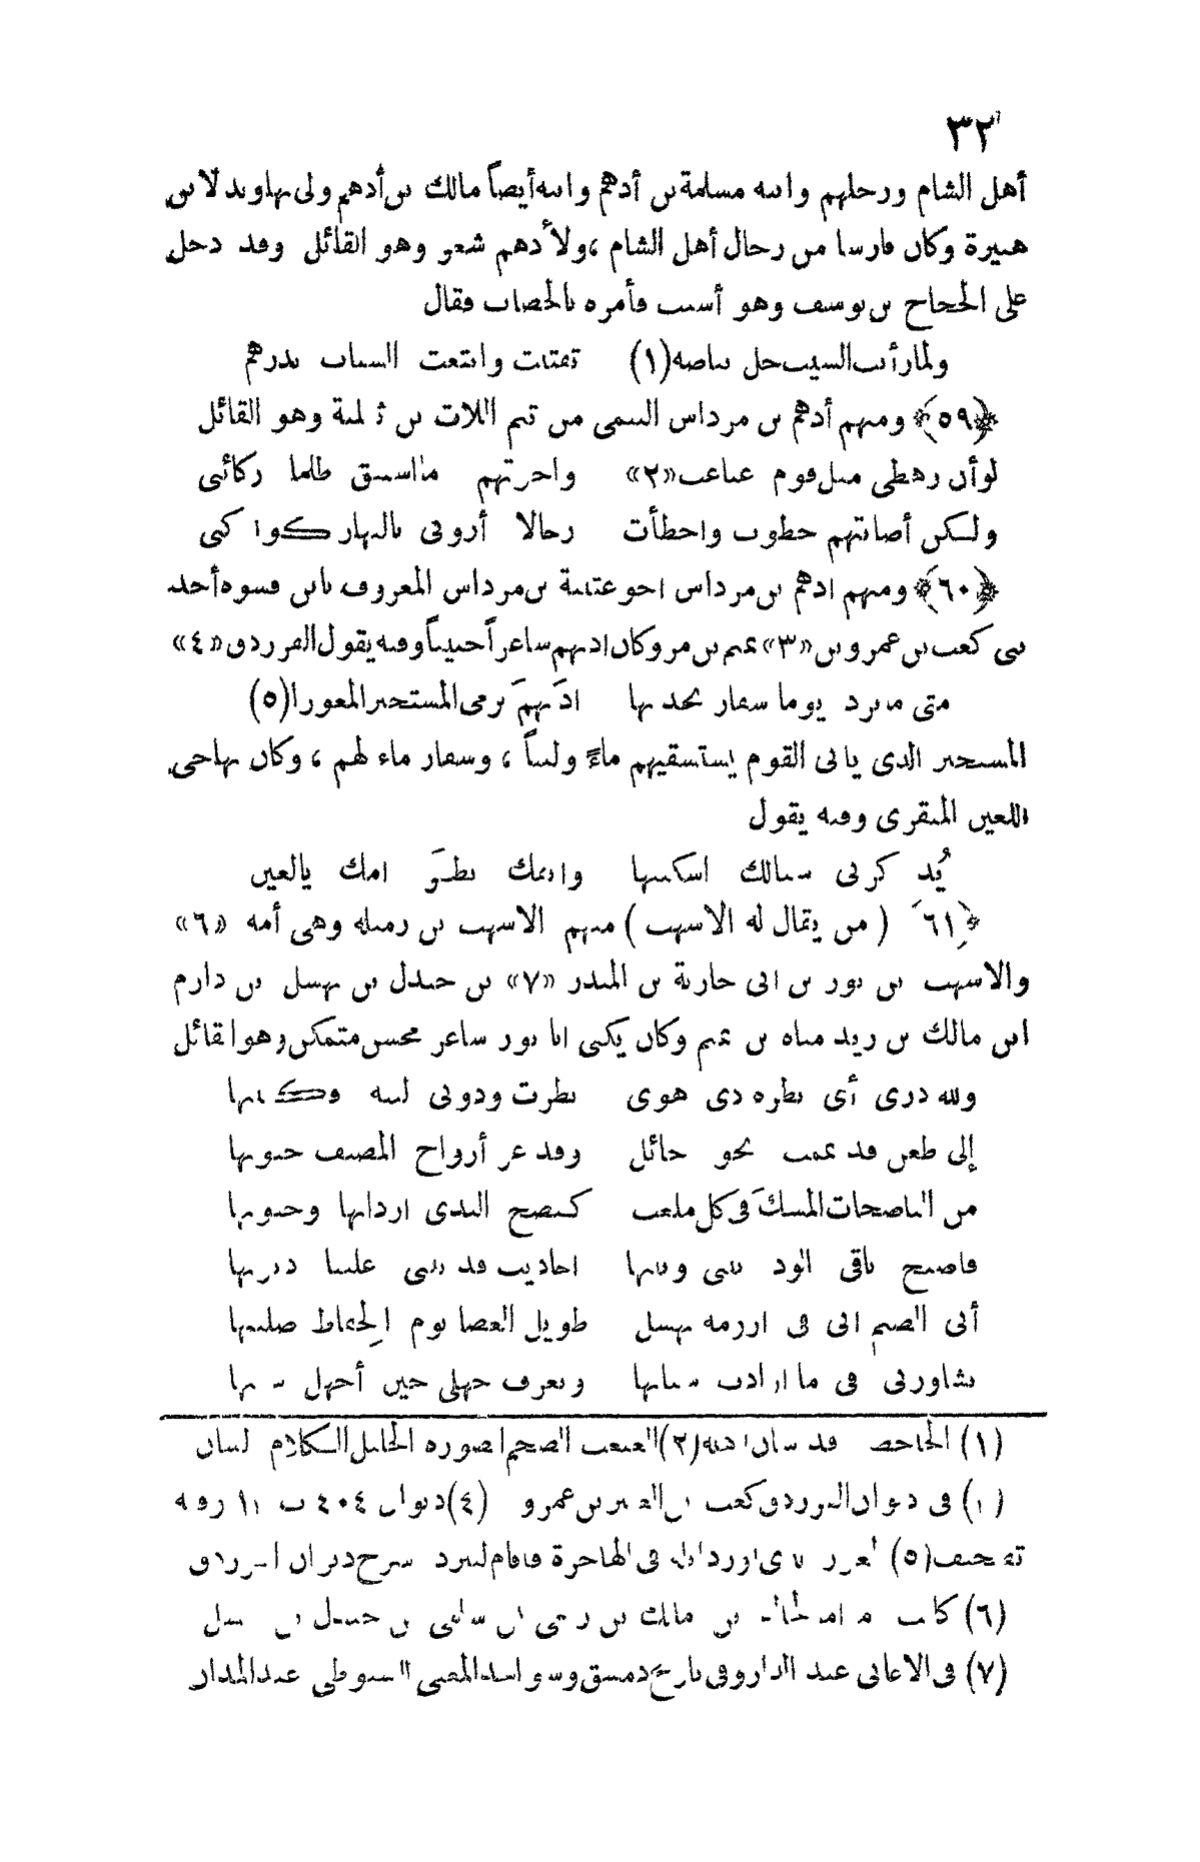 ٣٢
أهل الشام ورجلهم وابنه مسلمة بن أدهم وابنه أيضاً مالك بن أدهم ولى نهاوند لابن
هبيرة وكان فارسا من رجال أهل الشام ، ولأدهم شعر وهو القائل وقد دخل
على الحجاج بن يوسف وهو أشيب فأمره بالخضاب فقال
ولما رأيت الشيب حل بياضه (١) تفتيت وابتعت الشباب بدرهم
﴿٥٩﴾ ومنهم أدهم بن مرداس التيمى من تيم اللات بن ثعلبة وهو القائل
لو أن رهطى مثل قوم «٢» واخرتهم ما اسبق طلما ركائبى
ولكن أصابتهم خطوب واخطأت رجالا أرونى بالنهار كواكبى
﴿٦٠﴾ ومنهم ادهم بن مرداس اخو عتيبة بن مرداس المعروف بابن فسوه أحد
بنى كعب بن عمرو بن «٣» تميم بن مر وكان ادهم شاعراً خبيثاً وفيه يقول الفرزدق «٤»
متى ما ترد يوما سفار تجد بها ادَيهمَ يرمى المستجيز المعورا (٥)
المستجيز الذى يأتى القوم يستسقيهم ماءً ولبناً ، وسفار ماء لهم ، وكان يهاجى
اللعين المنقرى وفيه يقول
يُذكرنى سبالك اسكتيها وانفك بظرَ امك يالعين
﴿٦١ ( من يقال له الاشهب ) منهم الاشهب بن رميلة وهى أمه «٦»
والاشهب بن ثور بن ابى حارثة بن المنذر «٧» بن جندل بن نهشل بن دارم
ابن مالك بن زيد مناه بن تميم وكان يكنى ابا ثور شاعر محسن متمكن وهو القائل
ولله درى أى نظره ذى هوى نظرت ودونى لينه وكثيبها
إلى ظعن قد يممت نحو حائل وقد عز أرواح المصيف جنوبها
من الناضحات المسكَ فى كل ملعب كنضح الندى اردانها وجيوبها
فاصبح باقى الود بينى وبينها احاديث قد علينا ذنوبها
أبى الضيم انى فى ارومه نهشل طويل العصا يوم الحفاظ صليبها
يشاورنى فى ما ارادت شبابها ويعرف جهلى حين أجهل
(١) الجاحظ قد شان اهله (٢) الصحم الصوره الجليل الكلام لسان
( ) فى ديوان الفرزدق كعب بن العنبر بن عمرو (٤) ديوان ٤٠٤ ب
تصحيف (٥) فى الهاجرة شرح ديوان
(٦) كتاب بن مالك بن سلمى بن جندل بن
(٧) فى الاغانى عبد الدار وفى تاريخ دمشق وشواهد المغنى السيوطى عبد المدان